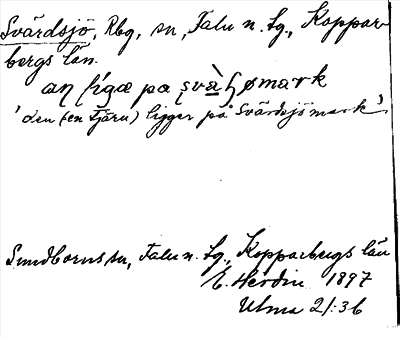 Svärdsjö, Rbg, sn, Falu n. tg., Koppar-
bergs län.
an ligæ pa svàɧømark
'den (en tjärn) ligger på Svärdsjömark'
Sundborns sn, Falu n. tg., Kopparbergs län
E. Herdin 1897
Ulma 21:36